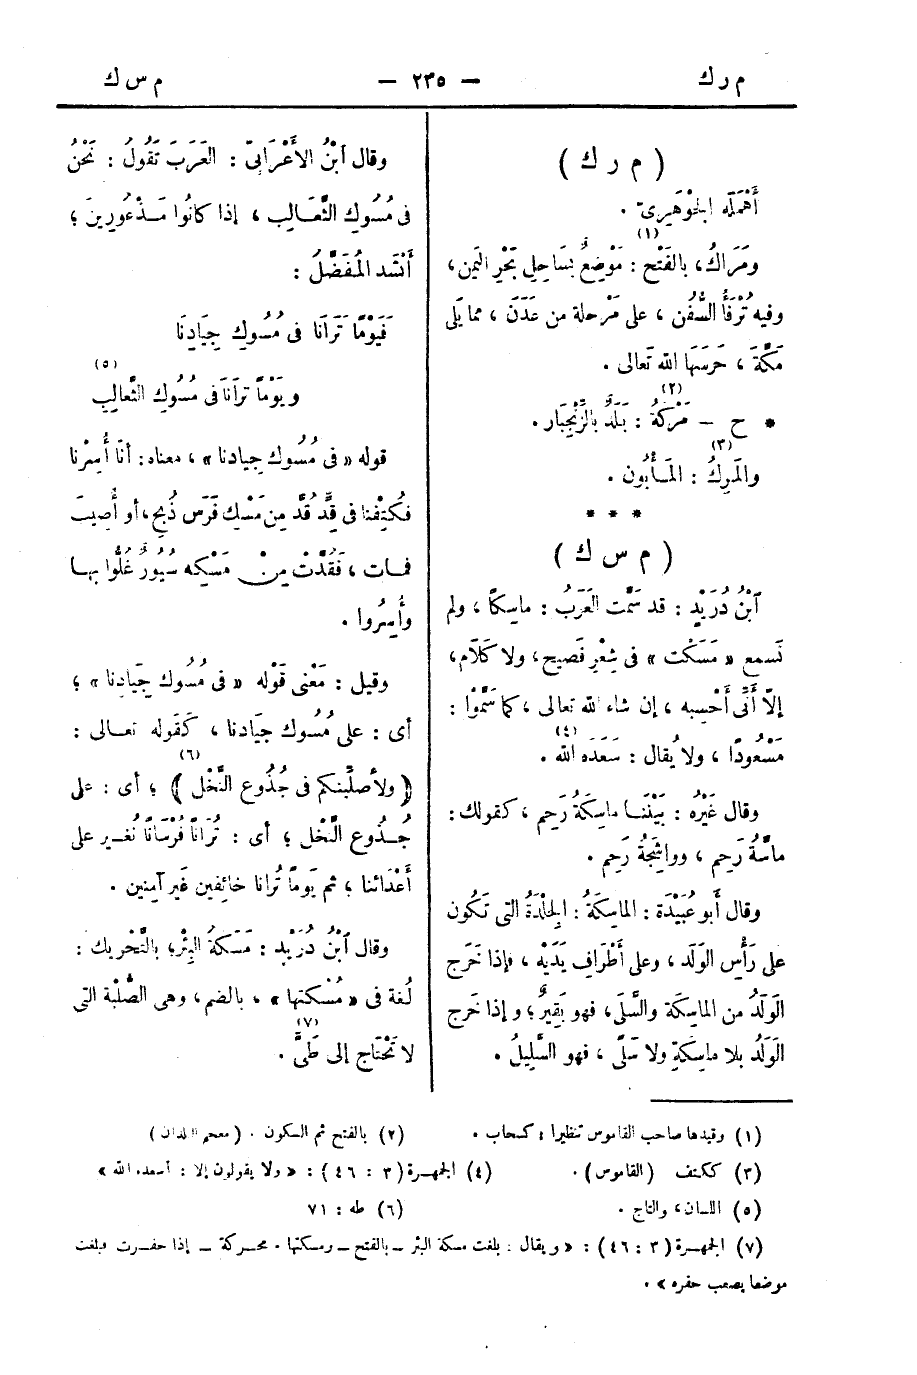 م ر ك — ٢٣٥ — م س ك
( م ر ك )
أَهْمَلَه الجَوْهَرِىّ .
ومَرَاكُ (١)، بالفَتْح : مَوْضِعٌ بسَاحِلِ بَحْرِ اليَمن،
وفيه تُرْفَأُ السُّفُن ، على مَرْحلة من عَدَنَ ، مما يَلِى
مَكَّةَ ، حَرَسَهَا الله تَعالى .
* ح – مَرْكَةُ (٢) : بَلَدٌ بالزَّنْجِبَار .
والمَرِكُ (٣) : المَــأْبُون .
* * *
( م س ك )
ٱبْنُ دُرَيْدٍ : قد سَمَّت العَرَبُ : ماسِكًا ، ولم
نَسمع « مَسَكْت » فى شِعْرٍ فَصيح، ولا كَلَامٍ،
إلّا أَنِّى أَحْسبه ، إن شاء الله تعالى ، كما سَمَّوْا :
مَسْعُودًا ، ولا يُقال : سَعَدَه الله (٤) .
وقال غَيْرُه : بَيْنَنــا ماسِكَةُ رَحِمٍ ، كقولك :
ماسَّةُ رَحِمٍ ، وواشِجَةُ رَحِمٍ .
وقال أَبو عُبَيْدَة : الماسِكَةُ : الجِلْدَةُ التى تَكُون
على رَأْسِ الوَلَد ، وعلى أَطْرَافِ يَدَيْه ، فإذا خَرَج
الوَلَدُ من الماسِكَة والسَّلَى، فهو بَقِيرٌ؛ و إذا خَرج
الوَلَدُ بلا ماسِكَةٍ ولا سَلًى ، فهو السَّلِيلُ .
وقال ٱبْنُ الأَعْرَابىّ : العَرَبَ تَقُولُ : نَحْنُ
فى مُسُوكِ الثَّعَــالِب ، إذا كانُوا مَــذْعُورِينَ ؛
أَنْشَد المُفَضَّلُ :
فَيَوْمًا تَرَانَا فى مُسُوكِ جِيَادِنَا
ويَوْمًا تَرانَا فى مُسُوك الثَّعالِبِ (٥)
قوله « فى مُسُوك جِيادنا » ، معناه : أنّا أُسِرْنا
فكُتِفْنا فى قِدٍّ قُدَّ مِن مَسْكِ فَرَس ذُبِح، أو أُصِيبَ
فمــات ، فَقُدَّتْ مِنْ مَسْكِه سُيُورٌ غُلُّوا بهــا
وأُسِرُوا .
وقيل : مَعْنى قَوْله « فى مُسُوك جِيَادِنا » ؛
أى : على مُسُوك جِيَادنا ، كَقَوله تعــالى :
﴿ ولأُصلِّبنكم فى جُذُوع النَّخْل ﴾ (٦) ؛ أى : على
جُــذُوع النَّخْل ؛ أى : تُرَانَا فُرْسَانًا نُغــير على
أَعْدَائنا ؛ ثم يَومًا تُرانا خائِفين غَير آمِنين .
وقال ٱبْنُ دُرَيْدٍ : مَسَكَةُ البِئر؛ بالتَّحْرِيك :
لُغة فى « مُسْكتها » ، بالضم، وهى الصُّلْبة التى
لا تَحْتَاج إلى طَىٍّ (٧) .
(١) وقيدها صاحب القاموس تنظيرا : كسحاب . (٢) بالفتح ثم السكون . ( معجم البلدان )
(٣) ككتف ( القاموس ) . (٤) الجمهــرة ( ٣ : ٤٦ ) : « ولا يقولون إلا : أسعده الله »
(٥) اللسان، والتاج . (٦) طه : ٧١
(٧) الجمهــرة ( ٣ : ٤٦ ) : « ويقال : بلغت مسكة البئر – بالفتح – ومسكتها . محــركة – إذا حفــرت فبلغت
موضعا يصعب حفره » .